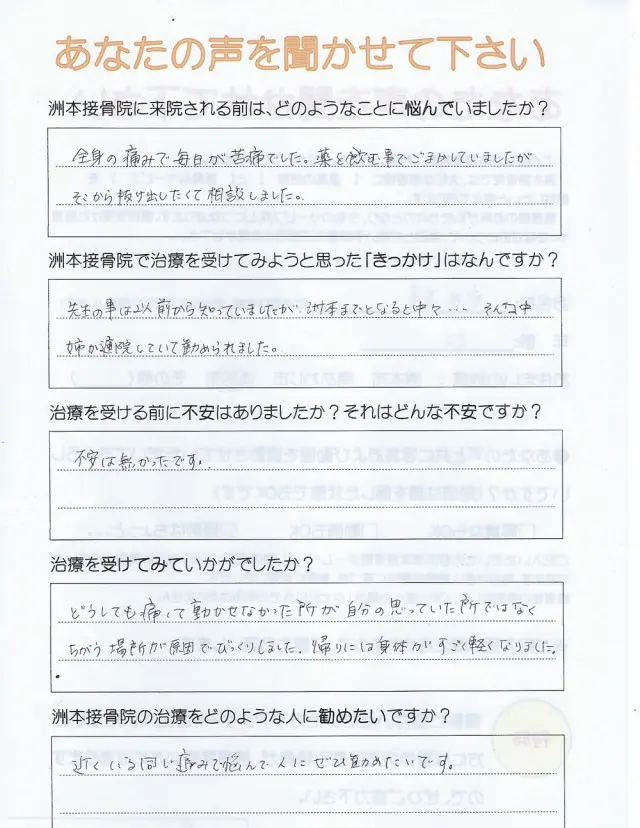 あなたの声を聞かせて下さい
洲本接骨院に来院される前は、どのようなことに悩んでいましたか？
全身の痛みで毎日が苦痛でした。薬を飲む事でごまかしていましたが
そこから抜け出したくて相談しました。
洲本接骨院で治療を受けてみようと思った「きっかけ」はなんですか？
先生の事は以前から知っていましたが、洲本までとなると中々・・・ そんな中
姉が通院していて勧められました。
治療を受ける前に不安はありましたか？それはどんな不安ですか？
不安は無かったです。
治療を受けてみていかがでしたか？
どうしても痛くて動かせなかった所が自分の思っていた所ではなく
ちがう場所が原因でびっくりしました。帰りには身体がすごく軽くなりました。
洲本接骨院の治療をどのような人に勧めたいですか？
近くいる同じ痛みで悩んで人にぜひ勧めたいです。